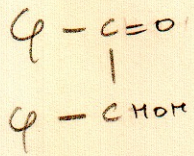 φ - C=O
|
φ - CHOH